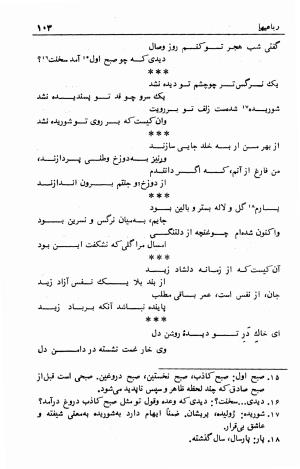 رباعیها
۱۰۳
گفتی شب هجر تو کنم روز وصال
دیدی که چو صبح اول۱۵ آمد سخنت۱۶؟
***
یک نرگس تر چو چشم تو دیده نشد
یک سرو چو قد تو پسندیده نشد
شوریده۱۷ شدست زلف تو بر رویت
وان کیست که بر روی تو شوریده نشد
***
از بهر من ار به خلد جایی سازند
ور نیز به دوزخ وطنی پردازند،
من فارغ از آنم، که اگر دانندم
از دوزخ و جنتم برون اندازند
***
پارم۱۸ گل و لاله بستر و بالین بود
جایم، به میان نرگس و نسرین بود
واکنون شده‌ام چو غنچه از دلتنگی
امسال مرا گلی که نشکفت این بود
***
آن کیست که از زمانه دلشاد زید
از بند بلا یک نفس آزاد زید
جان، از نفس است، عمر باقی مطلب
پاینده نباشد آنکه بر باد زید
***
ای خاک در تو دیدهٔ روشن دل
وی خار غمت نشسته در دامن دل
۱۵. صبح اول: صبح کاذب، صبح نخستین، صبح دروغین. صبحی است قبل از صبح صادق که چند لحظه ظاهر و سپس ناپدید می‌شود.
۱۶. دیدی... سخنت؟: دیدی که وعده وقول تو مثل صبح کاذب دروغ درآمد؟
۱۷. شوریده: ژولیده، پریشان. ضمناً ایهام دارد به شوریده به‌معنی شیفته و عاشق بی‌قرار.
۱۸. پار: پارسال، سال گذشته.